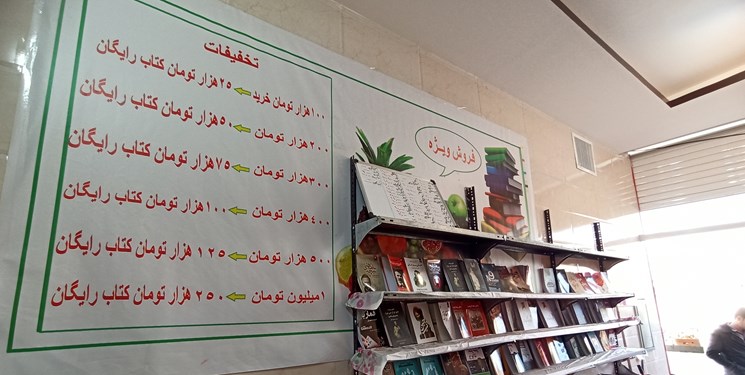 تخفیفات
۱۰۰هزار تومان خرید ← ۲۵هزار تومان کتاب رایگان
۲۰۰هزار تومان ← ۵۰هزار تومان کتاب رایگان
۳۰۰هزار تومان ← ۷۵هزار تومان کتاب رایگان
۴۰۰ هزار تومان ← ۱۰۰هزار تومان کتاب رایگان
۵۰۰ هزار تومان ← ۱۲۵ هزار تومان کتاب رایگان
۱میلیون تومان ← ۲۵۰ هزار تومان کتاب رایگان
فروش ویژه